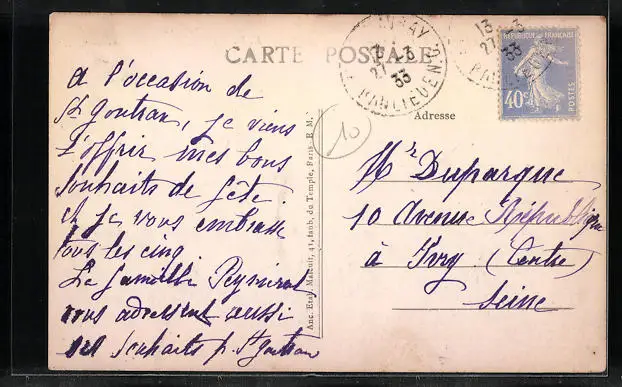 CARTE POSTALE
A l'occasion de
St Gontran, je viens
t'offrir mes bons
souhaits de fête
et je vous embrasse
tous les cinq.
La famille
vous adressent aussi
souhaits p. St Gontran
Anc. Etab. Malcuit, 41, faub. du Temple, Paris. E. M.
10
Adresse
Mr Duparque
10 Avenue République
à Ivry (Centre)
Seine
13 -3
27
33
13 -3
27
33
REPUBLIQUE FRANÇAISE
40c
POSTES